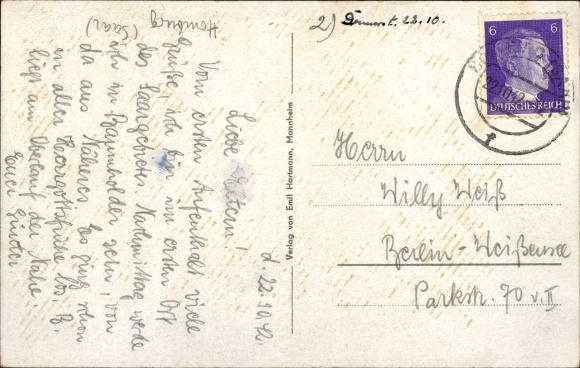 Homburg
(Saar)
d. 22.10.42.
Liebe Eltern!
Vom ersten Aufenthalt viele
Grüße! Ich bin im ersten Ort
des Saargebietes. Nachmittag werde
ich in Baumholder sein, von
da aus Näheres. Es ging schon
in aller Herrgottsfrühe los. B.
liegt am Oberlauf der Nahe.
Euer
Günter.
2) Donnerst. 22.10.
6 6
DEUTSCHES REICH
Verlag von Emil Hartmann, Mannheim
Herrn
Willy Weiß
Berlin-Weißensee
Parkstr. 70 v. II